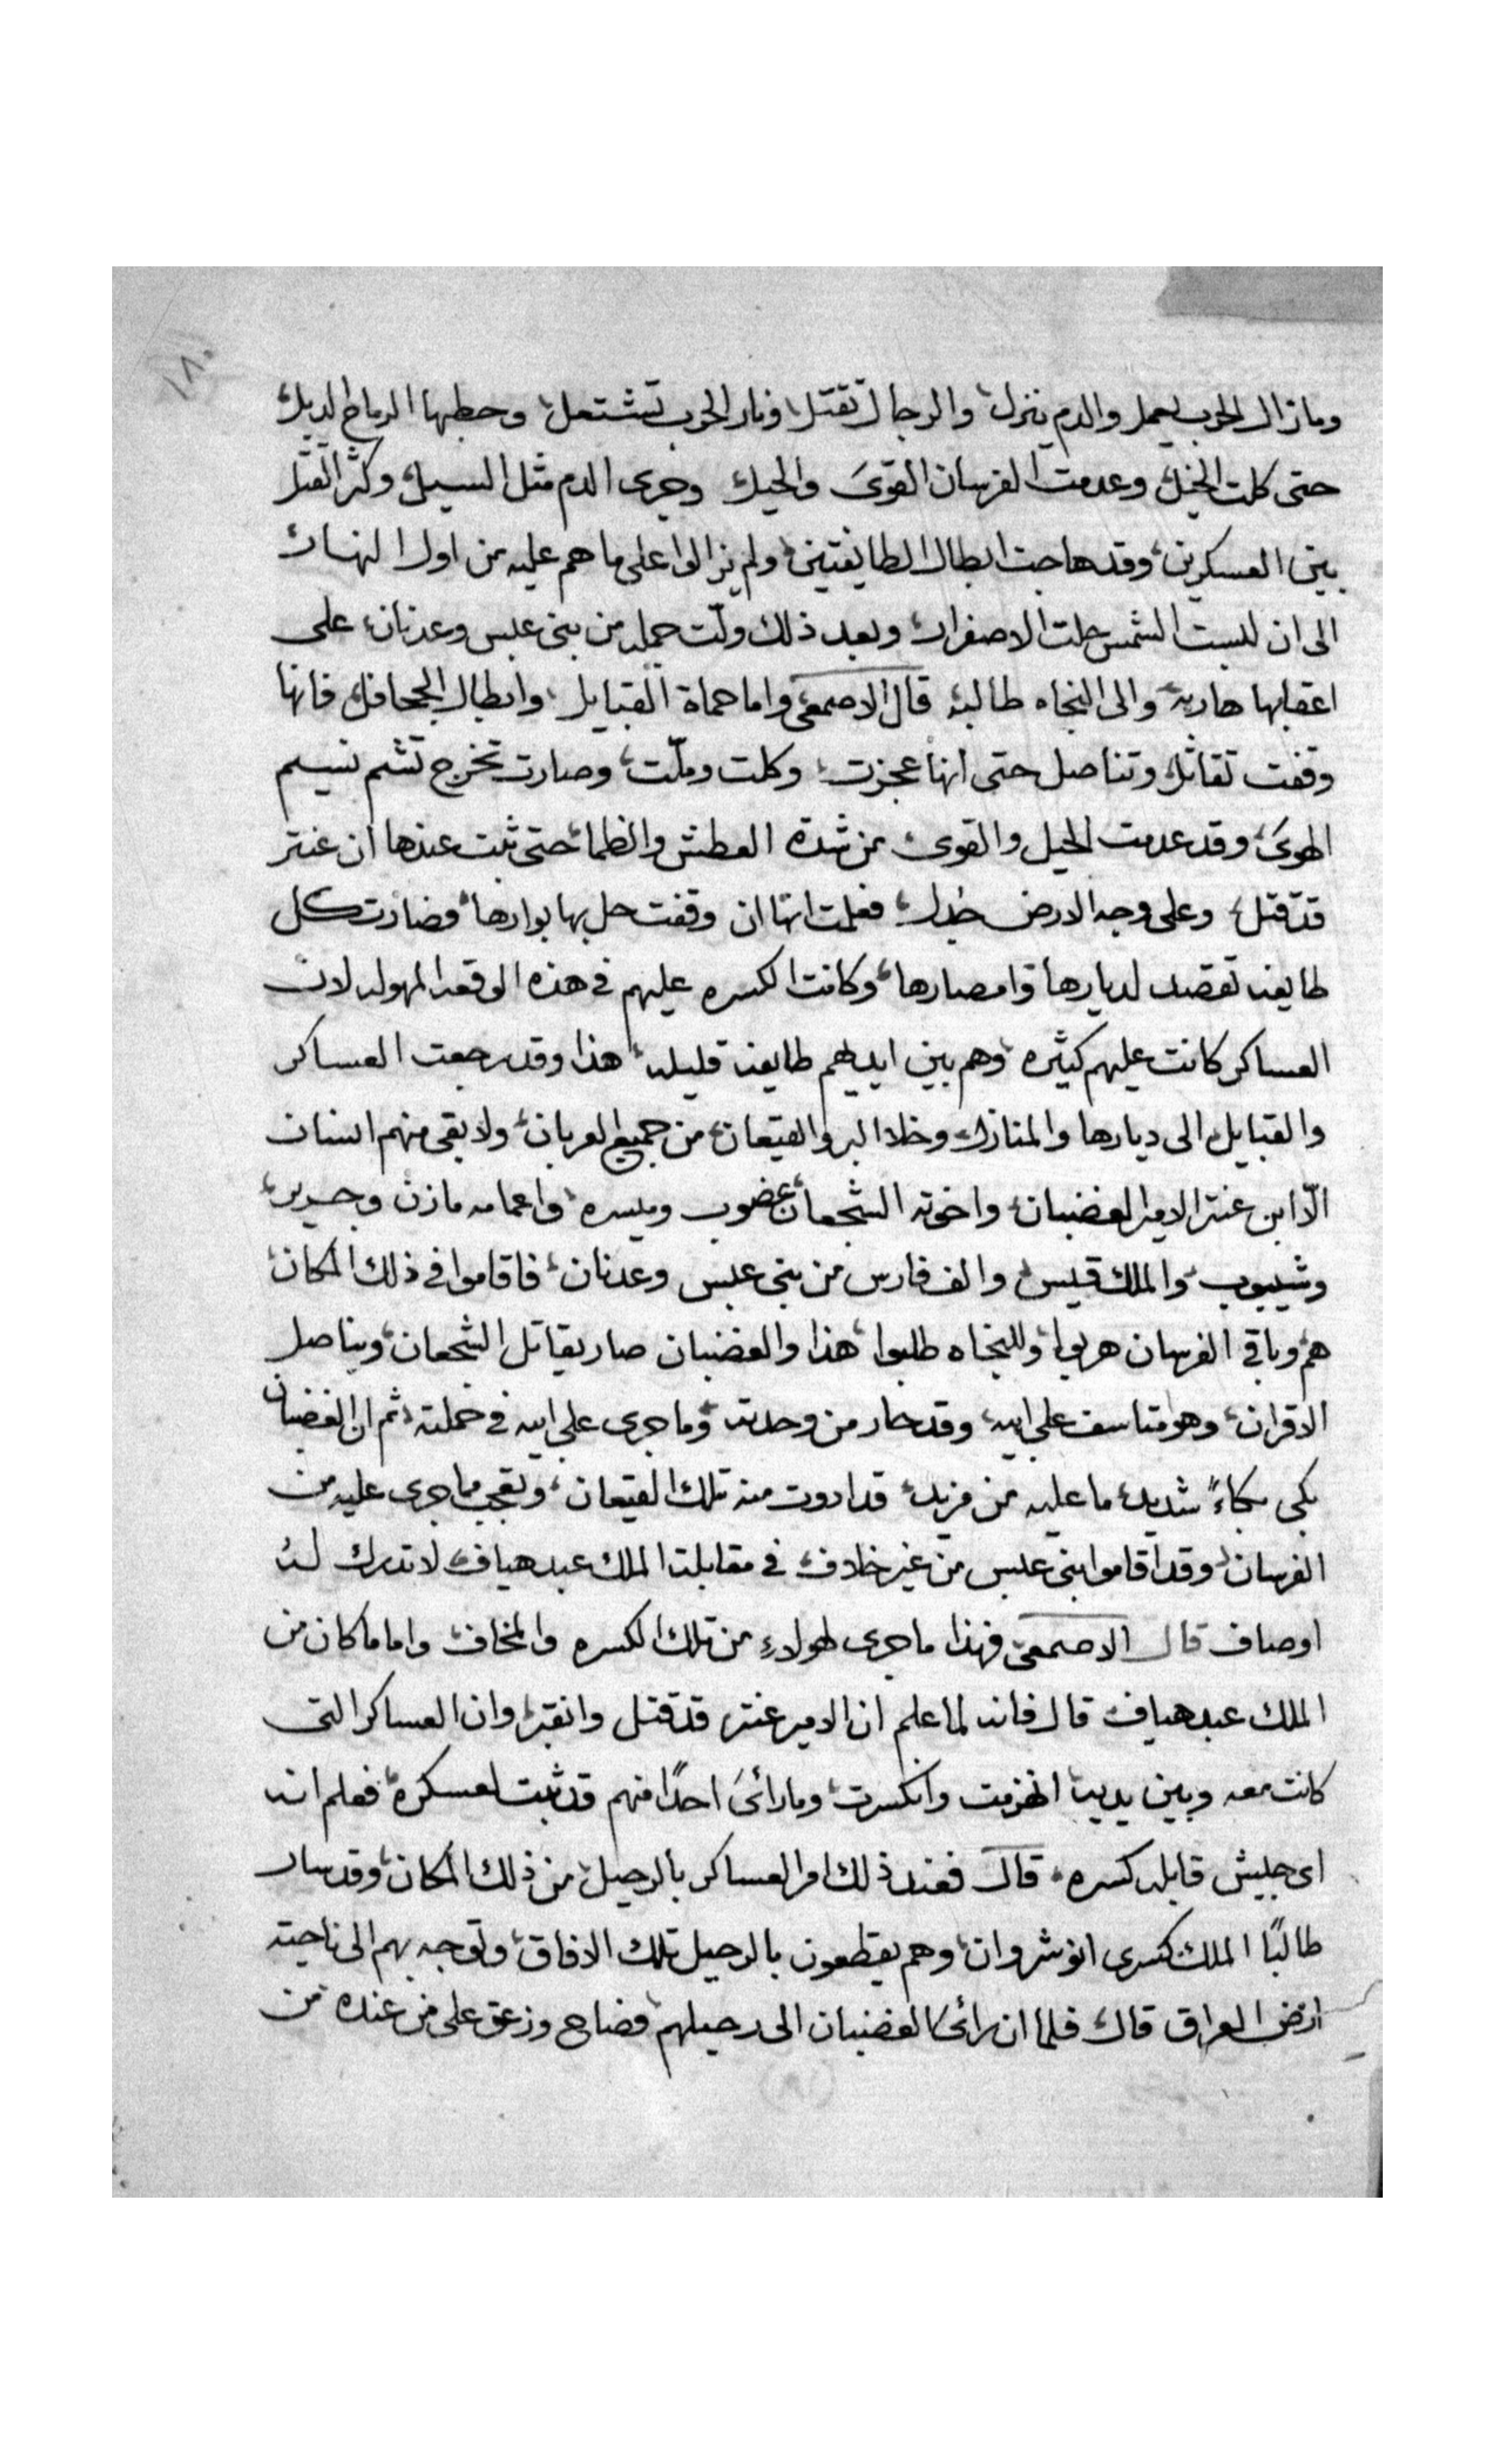 ١٨٠
ومازال الحرب يعمل والدم ينزل، والرجال تقتل، ونار الحرب تشتعل، وحطبها الرماح الدبل،
حتى كلت الخيل، وعدمت الفرسان القوىَ والحيل، وجرى الدم مثل السيل، وكثر القتل
بين العسكرين، وقد هاجت ابطال الطايفتين، ولم يزالوا على ما هم عليه من اول النهار
الى ان لبست الشمس حلت الاصفرار، وبعد ذلك ولّت جمله من بنى عبس وعدنان، على
اعقابها هاربه، والى النجاه طالبه، قال الاصمعى واما حماة القبايل، وابطال الجحافل، فانها
وقفت تقاتل، وتناصل حتى انها عجزت، وكلت وملّت، وصارت تخرج تشم نسيم
الهوىَ، وقد عدمت الحيل والقوى، من شدة العطش والظما، حتى ثبت عندها ان عنتر
قد قتل، وعلى وجه الارض جدل، فعلمت انها ان وقفت حل بها بوارها، فصارت كل
طايفه تقصد لديارها وامصارها، وكانت الكسره عليهم فى هذه الوقعه المهوله لان
العساكر كانت عليهم كثيره، وهم بين ايديهم طايفه قليله، هذا وقد رجعت العساكر
والقبايل الى ديارها والمنازل، وخلا البر والقيعان، من جميع العربان، ولا بقى منهم انسان
الّا ابن عنتر الامير الغضبان، واخوته الشجعان، غضوب وميسره، واعمامه مازن وجرير،
وشيبوب، والملك قيس، والف فارس من بنى عبس وعدنان، فاقاموا فى ذلك المكان،
هم وباقى الفرسان هربوا، وللنجاه طلبوا، هذا والغضبان صار يقاتل الشجعان، ويناصل
الاقران، وهو متاسف على ابيه، وقد حار من وحدته، وما جرى على ابيه فى حملته، ثم ان الغضبان
بكى بكاءً شديد، ما عليه من مزيد، قد اروت منه تلك القيعان، وتعجب مما جرى عليه من
الفرسان، وقد اقاموا بنى عبس من غير خلاف، فى مقابلت الملك عبد هياف، لا تدرك له
اوصاف قال الاصمعىّ فهذا ما جرى لهولاء من تلك الكسره والمخاف، واما ما كان من
الملك عبد هياف قال فانه لما علم ان الامير عنتر قد قتل وانقبر، وان العساكر التى
كانت معه وبين يديه انهزمت وانكسرت، وما رائىَ احدًا منهم قد ثبت لعسكره، فعلم انه
اى جيش قابله كسره، قال فعند ذلك امر العساكر بالرحيل، من ذلك المكان، وقد سار
طالبًا الملك كسرى انوشروان، وهم يقطعون بالرحيل تلك الافاق، وتوجه بهم الى ناحية
ارض العراق قال، فلما ان رائىَ الغضبان الى رحيلهم، فصاح وزعق على من عنده من